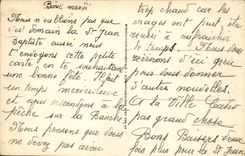 Paris mardi
Nous n'oublions pas que
c'est demain la St Jean
Baptiste aussi nous
t'envoyons cette petite
carte en te souhaitant
une bonne fête. Il fait
un temps merveilleux
et nous revenons à la
pêche sur la Rance
Nous pensons que vous
ne devez pas avoir
trop chaud car les
orages ont peut être
réussi à rafraîchir
le temps. Nous vous
écrirons d'ici peu
pour vous donner
d'autres nouvelles.
la Ville
pas grand chose
Bons Baisers d'une
fois plus pour la St Jean